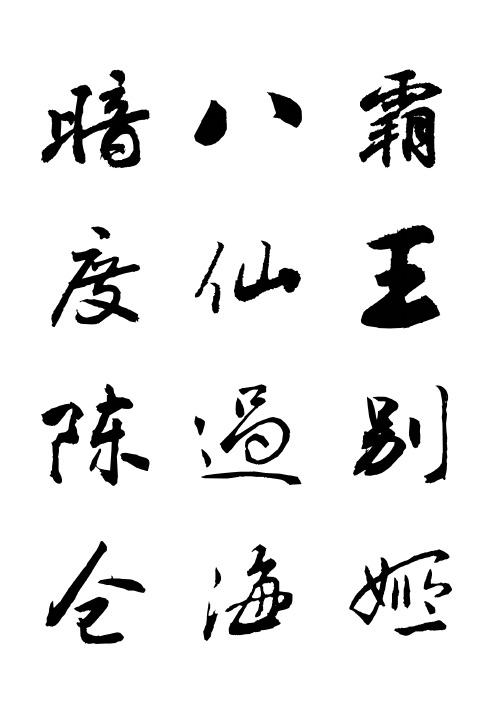 霸王别姬
八仙過海
暗度陈仓